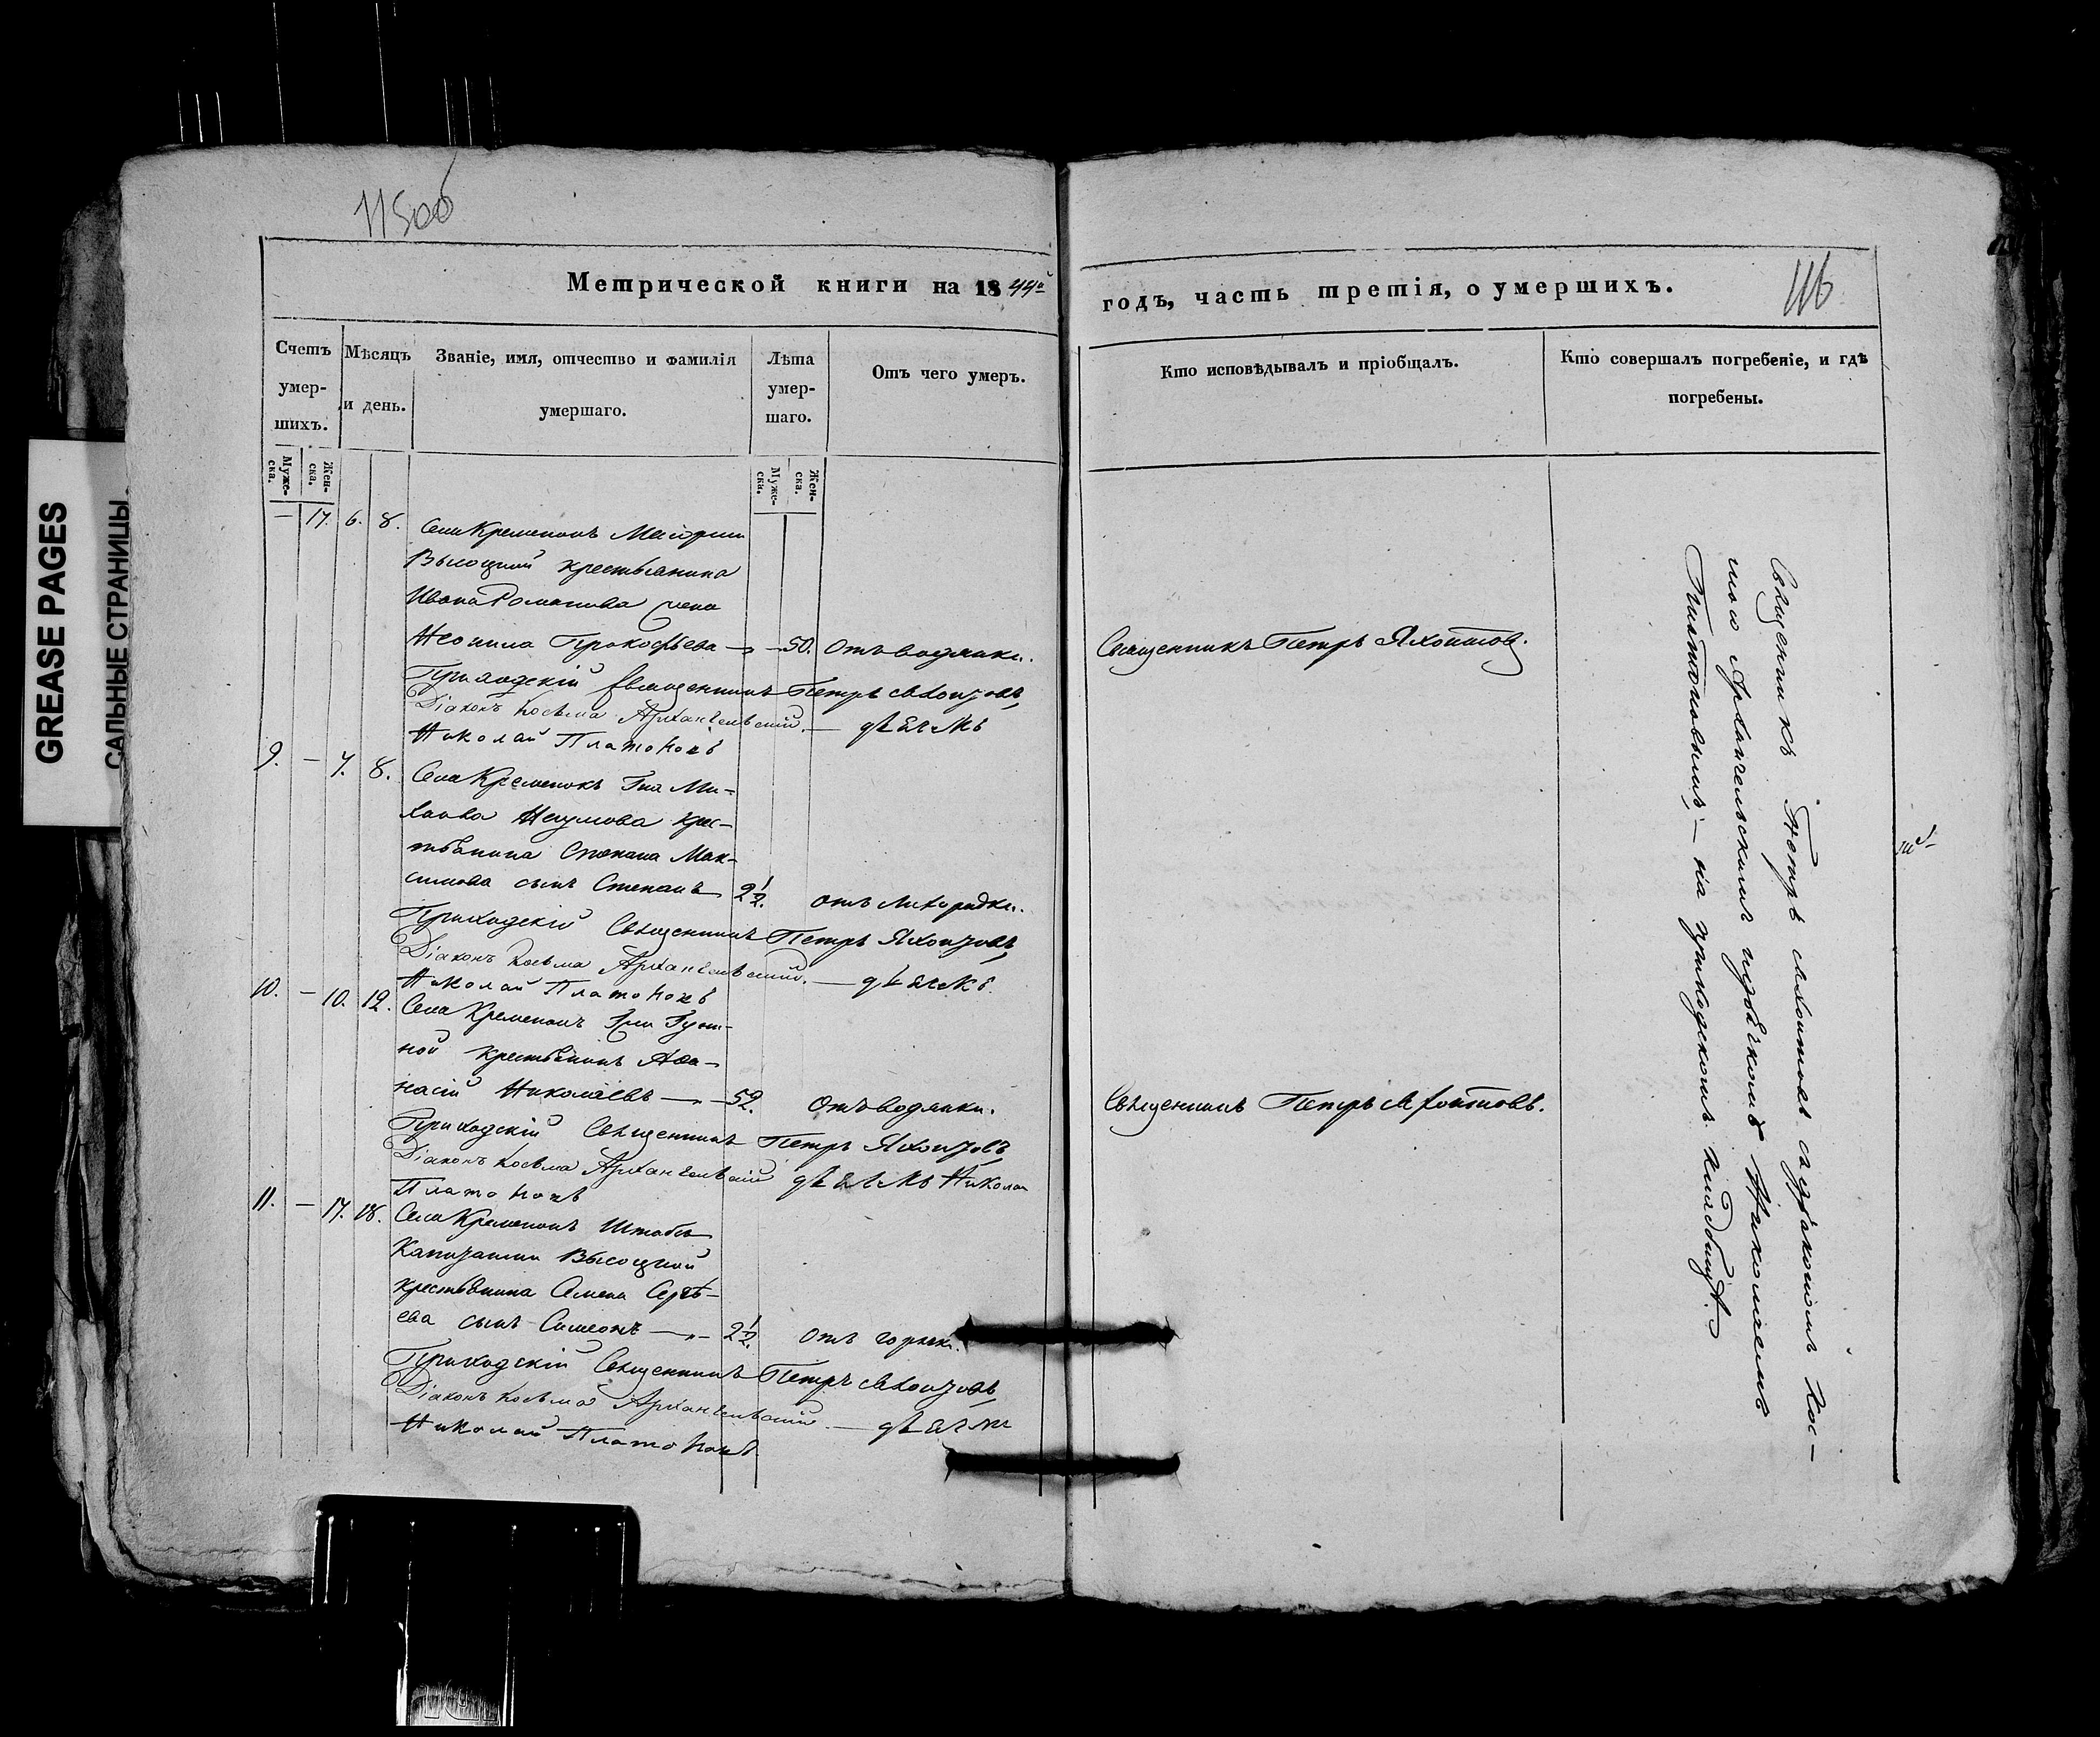 GREASE PAGES
САЛЬНЫЕ СТРАНИЦЫ
115об
116
Метрической книги на 1844й
годъ, часть третія, о умершихъ.
Счетъ умер-шихъ.
Муже-ска.
Жен-ска.
Мѣсяцъ и день.
Званіе, имя, отчество и фамилія умершаго.
Лѣта умер-шаго.
Муже-ска.
Жен-ска.
Отъ чего умеръ.
Кто исповѣдывалъ и пріобщалъ.
Кто совершалъ погребеніе, и гдѣ погребены.
— 17. 6. 8. Села Кременокъ
Высоцкой крестьянина
Ивана Романова жена
Неонила Прокофьева — 50. Отъ водянки. Священникъ Петръ Яхонтовъ.
Приходскій Священникъ Петръ Яхонтовъ,
Діаконъ Косьма Архангельскій. — дьячекъ
Николай Платоновъ
9. — 7. 8. Села Кременокъ Гна Ми-
Наумова крес-
тьянина Степана Мак-
симова сынъ Степанъ 2 1/2. отъ лихорадки.
Приходскій Священникъ Петръ Яхонтовъ,
Діаконъ Косьма Архангельскій. — дьячекъ
Николай Платоновъ
10. — 10. 12. Села Кременокъ
ной крестьянинъ Афа-
насій Николаевъ — 52. Отъ водянки. Священникъ Петръ Яхонтовъ.
Приходскій Священникъ Петръ Яхонтовъ,
Діаконъ Косьма Архангельскій дьячекъ Николай
Платоновъ
11. — 17. 18. Села Кременокъ Штабсъ
Капитанши Высоцкой
крестьянина Семена Сергѣ-
ева сынъ Симеонъ — 2 1/2. Отъ горячки.
Приходскій Священникъ Петръ Яхонтовъ,
Діаконъ Косьма Архангельскій. — дьячекъ
Николай Платоновъ.
Священникъ Петръ Яхонтовъ съ діакономъ Кос-
мою Архангельскимъ и дьячкомъ Николаемъ
Платоновымъ, — на приходскомъ кладбищѣ.